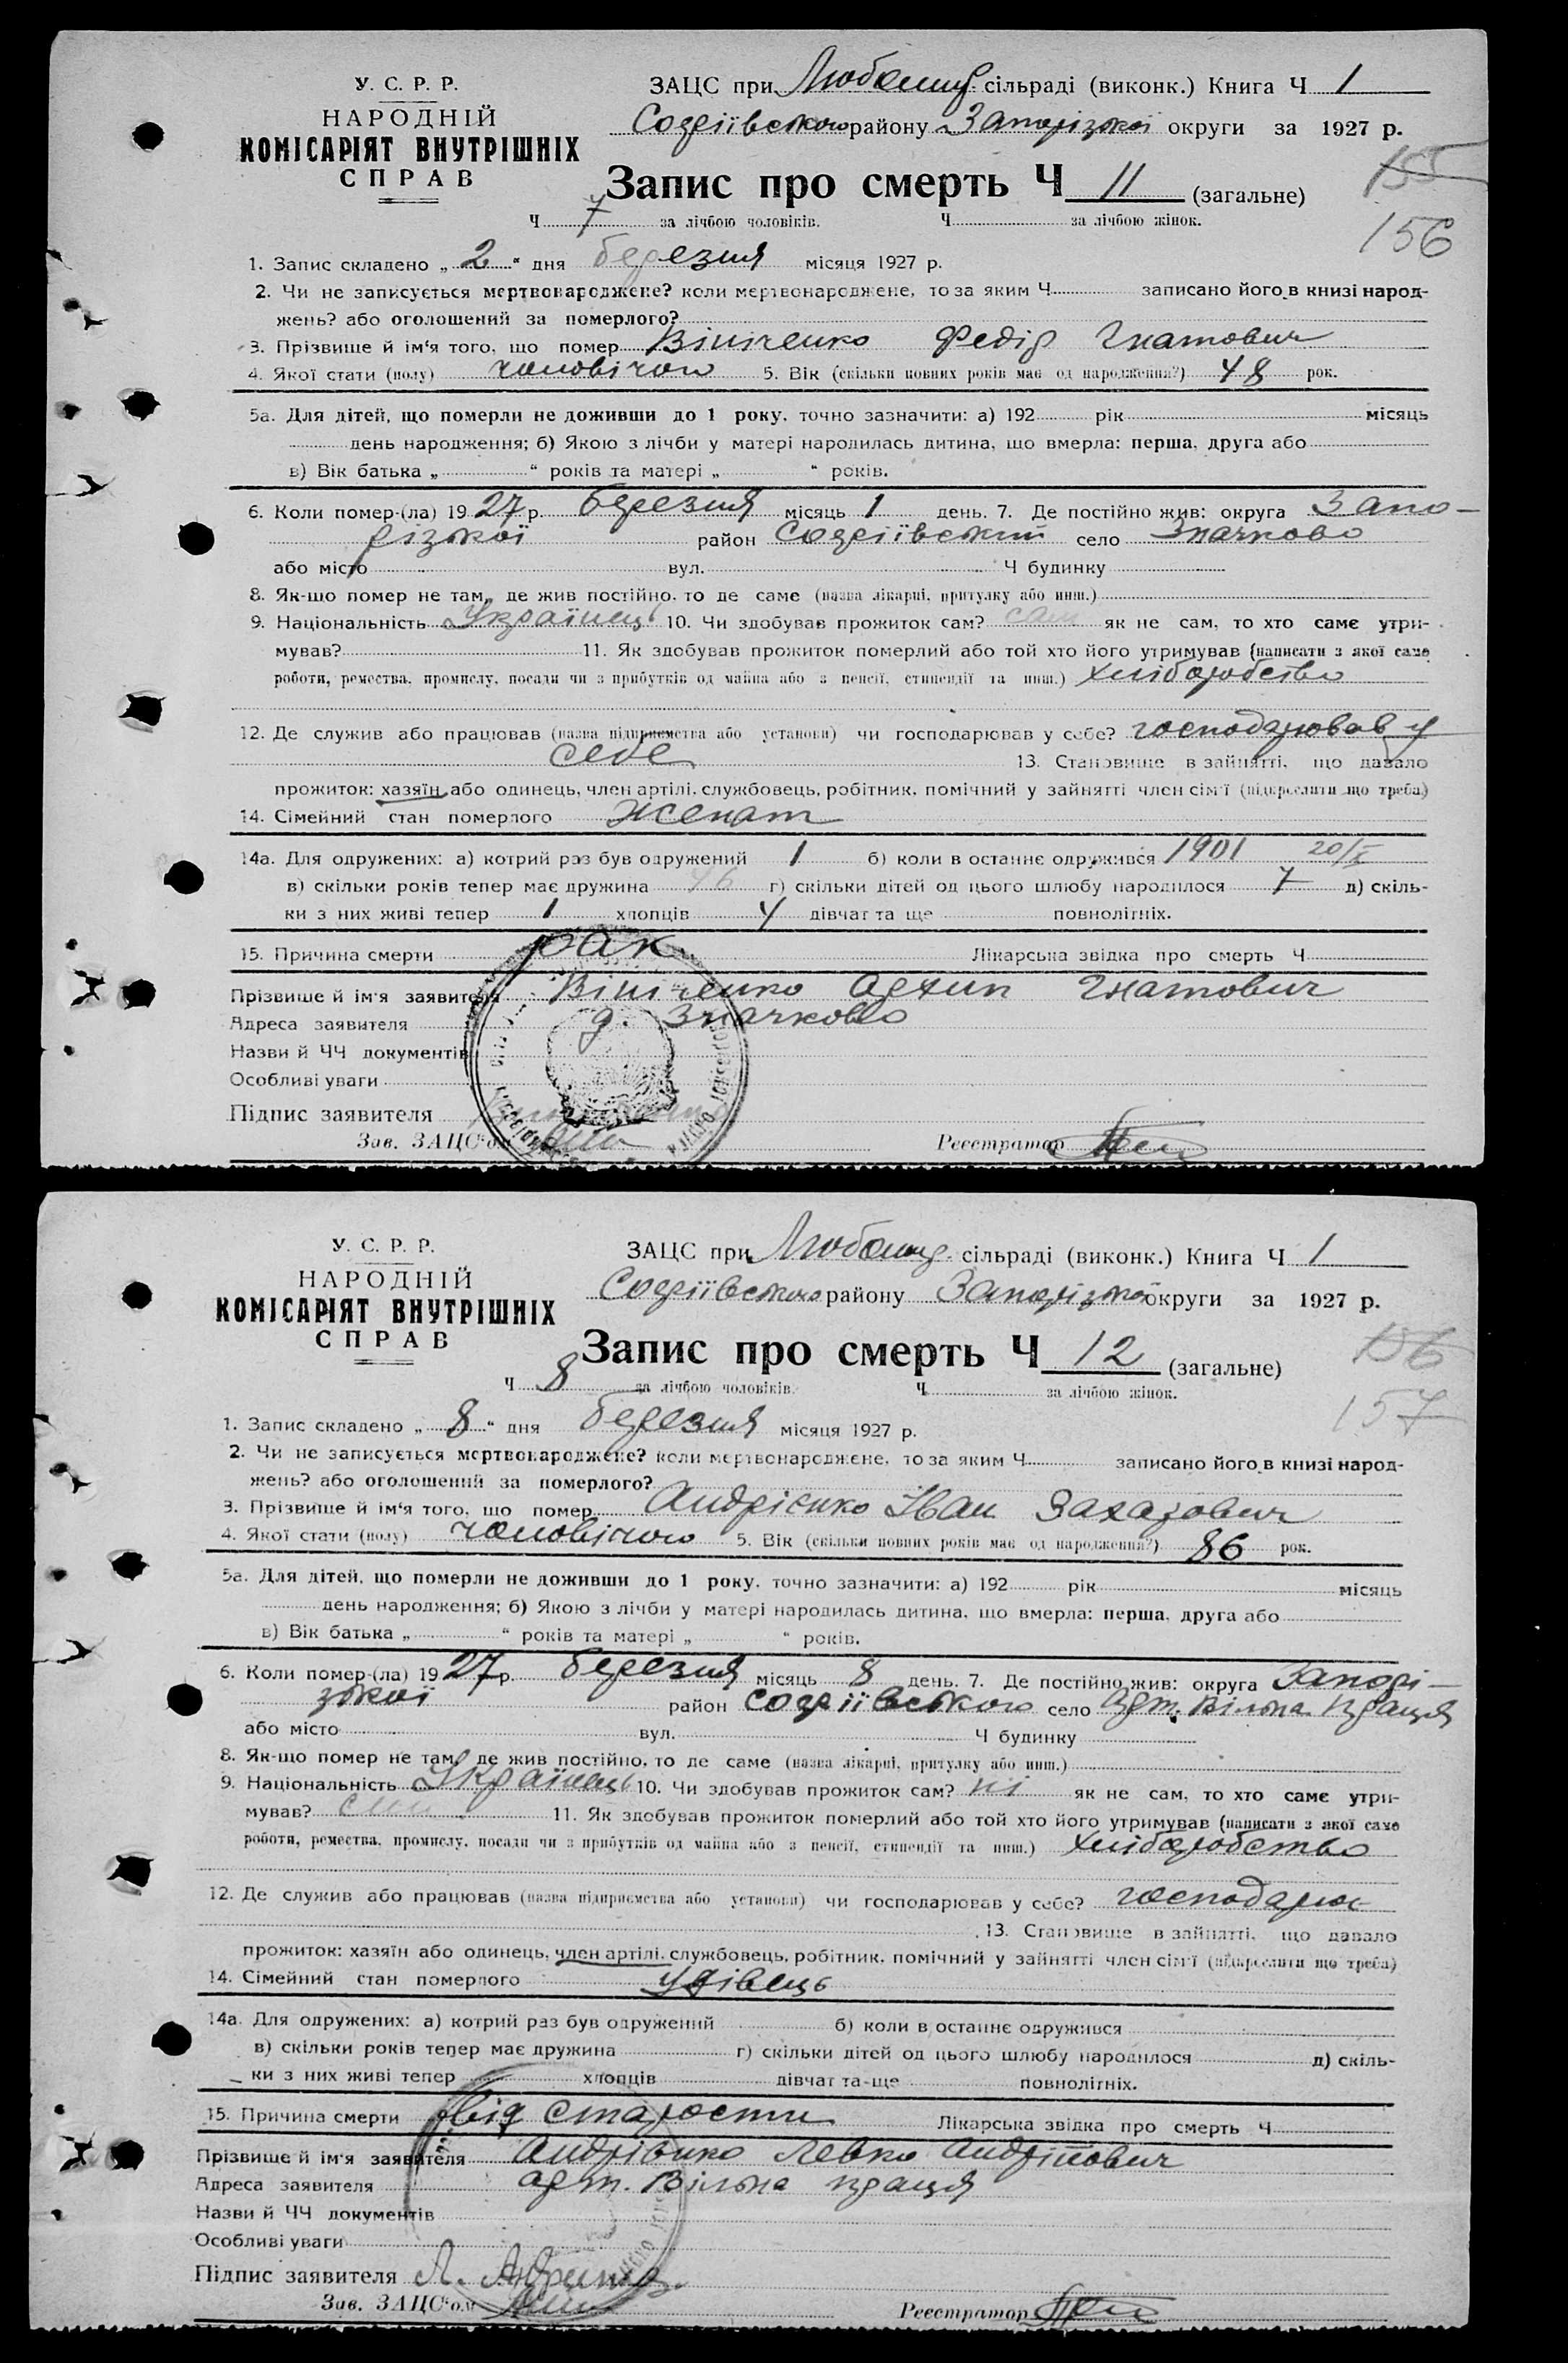 У. С. Р. Р.
НАРОДНІЙ
КОМІСАРІЯТ ВНУТРІШНІХ
СПРАВ
ЗАЦС при Любомир. сільраді (виконк.) Книга Ч 1
Софіївського району Запорізької округи за 1927 р.
155
Запис про смерть Ч 11 (загальне)
156
Ч 7 за лічбою чоловіків. Ч за лічбою жінок.
1. Запис складено „ 2 “ дня березня місяця 1927 р.
2. Чи не записується мертвонароджене? коли мертвонароджене, то за яким Ч записано його в книзі народ-
жень? або оголошений за померлого?
3. Прізвище й ім'я того, що помер Вініченко Федір Гнатович
4. Якої стати (полу) чоловічого 5. Вік (скільки повних років має од народження?) 48 рок.
5а. Для дітей, що померли не доживши до 1 року, точно зазначити: а) 192 рік місяць
день народження; б) Якою з лічби у матері народилась дитина, що вмерла: перша, друга або
в) Вік батька „ “ років та матері „ “ років.
6. Коли помер-(ла) 1927 р. березня місяць 1 день. 7. Де постійно жив: округа Запо-
різької район Софіївський село Значково
або місто вул. Ч будинку
8. Як-що помер не там, де жив постійно, то де саме (назва лікарні, притулку або инш.)
9. Національність Українець 10. Чи здобував прожиток сам? сам як не сам, то хто саме утри-
мував? 11. Як здобував прожиток померлий або той хто його утримував (написати з якої саме
роботи, ремества, промислу, посади чи з прибутків од майна або з пенсії, стипендії та инш.) хліборобство
12. Де служив або працював (назва підприємства або установи) чи господарював у себе? господарював у
себе 13. Становище в зайнятті, що давало
прожиток: хазяїн або одинець, член артілі, службовець, робітник, помічний у зайнятті член сім'ї (підкреслити що треба)
14. Сімейний стан померлого Женат
14а. Для одружених: а) котрий раз був одружений 1 б) коли в останнє одружився 1901 20/X
в) скільки років тепер має дружина 46 г) скільки дітей од цього шлюбу народилося 7 д) скіль-
ки з них живі тепер 1 хлопців 4 дівчат та ще повнолітніх.
15. Причина смерти рак Лікарська звідка про смерть Ч
Прізвище й ім'я заявителя Вініченко Архип Гнатович
Адреса заявителя д. Значково
Назви й ЧЧ документів
Особливі уваги
Підпис заявителя
Зав. ЗАЦС'ом Реєстратор
У. С. Р. Р.
НАРОДНІЙ
КОМІСАРІЯТ ВНУТРІШНІХ
СПРАВ
ЗАЦС при Любомир. сільраді (виконк.) Книга Ч 1
Софіївського району Запорізької округи за 1927 р.
156
Запис про смерть Ч 12 (загальне)
157
Ч 8 за лічбою чоловіків. Ч за лічбою жінок.
1. Запис складено „ 8 “ дня березня місяця 1927 р.
2. Чи не записується мертвонароджене? коли мертвонароджене, то за яким Ч записано його в книзі народ-
жень? або оголошений за померлого?
3. Прізвище й ім'я того, що помер Андрієнко Іван Захарович
4. Якої стати (полу) чоловічого 5. Вік (скільки повних років має од народження?) 86 рок.
5а. Для дітей, що померли не доживши до 1 року, точно зазначити: а) 192 рік місяць
день народження; б) Якою з лічби у матері народилась дитина, що вмерла: перша, друга або
в) Вік батька „ “ років та матері „ “ років.
6. Коли помер-(ла) 1927 р. березня місяць 8 день. 7. Де постійно жив: округа Запорі-
зької район Софіївського село арт. Вільна праця
або місто вул. Ч будинку
8. Як-що помер не там, де жив постійно, то де саме (назва лікарні, притулку або инш.)
9. Національність Українець 10. Чи здобував прожиток сам? ні як не сам, то хто саме утри-
мував? син 11. Як здобував прожиток померлий або той хто його утримував (написати з якої саме
роботи, ремества, промислу, посади чи з прибутків од майна або з пенсії, стипендії та инш.) хліборобство
12. Де служив або працював (назва підприємства або установи) чи господарював у себе?
13. Становище в зайнятті, що давало
прожиток: хазяїн або одинець, член артілі, службовець, робітник, помічний у зайнятті член сім'ї (підкреслити що треба)
14. Сімейний стан померлого удівець
14а. Для одружених: а) котрий раз був одружений б) коли в останнє одружився
в) скільки років тепер має дружина г) скільки дітей од цього шлюбу народилося д) скіль-
ки з них живі тепер хлопців дівчат та-ще повнолітніх.
15. Причина смерти від старости Лікарська звідка про смерть Ч
Прізвище й ім'я заявителя Андрієнко Левко
Адреса заявителя арт. Вільна праця
Назви й ЧЧ документів
Особливі уваги
Підпис заявителя Л.
Зав. ЗАЦС'ом Реєстратор